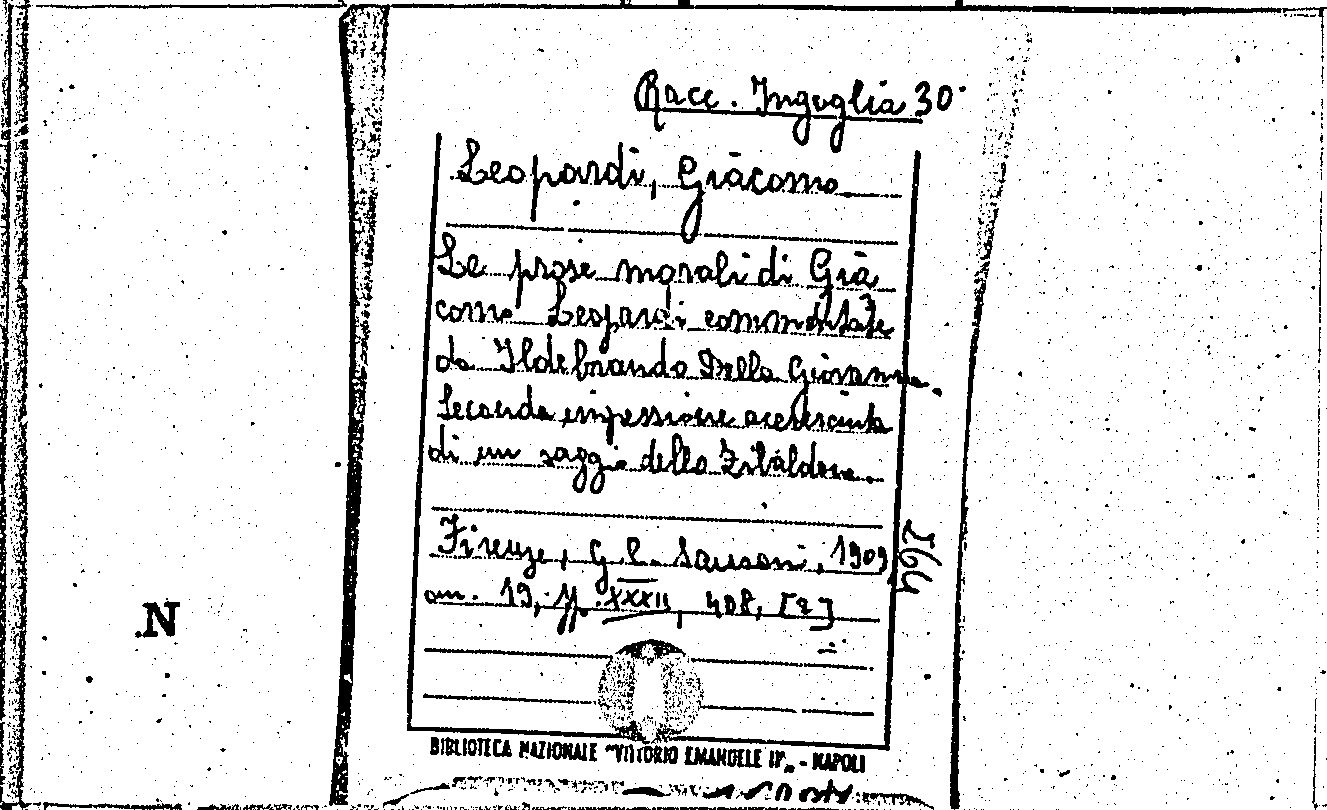 Racc. Ingoglia 30
Leopardi, Giacomo
Le prose morali di Gia
como Leopardi commentate
da Ildebrando Della Giovanna.
Seconda impessione accresciuta
di un saggio dello Zibaldone.
Firenze, G. C. Sansoni, 1909
cm. 19, pp. XXXII, 408, [2]
N
BIBLIOTECA NAZIONALE "VITTORIO EMANUELE III" - NAPOLI